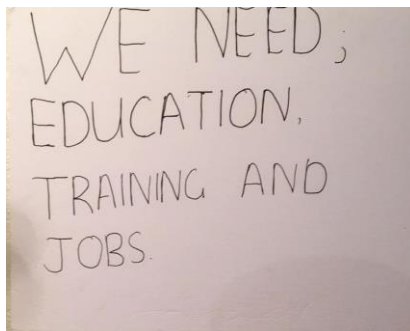 WE NEED;
EDUCATION,
TRAINING AND
JOBS.